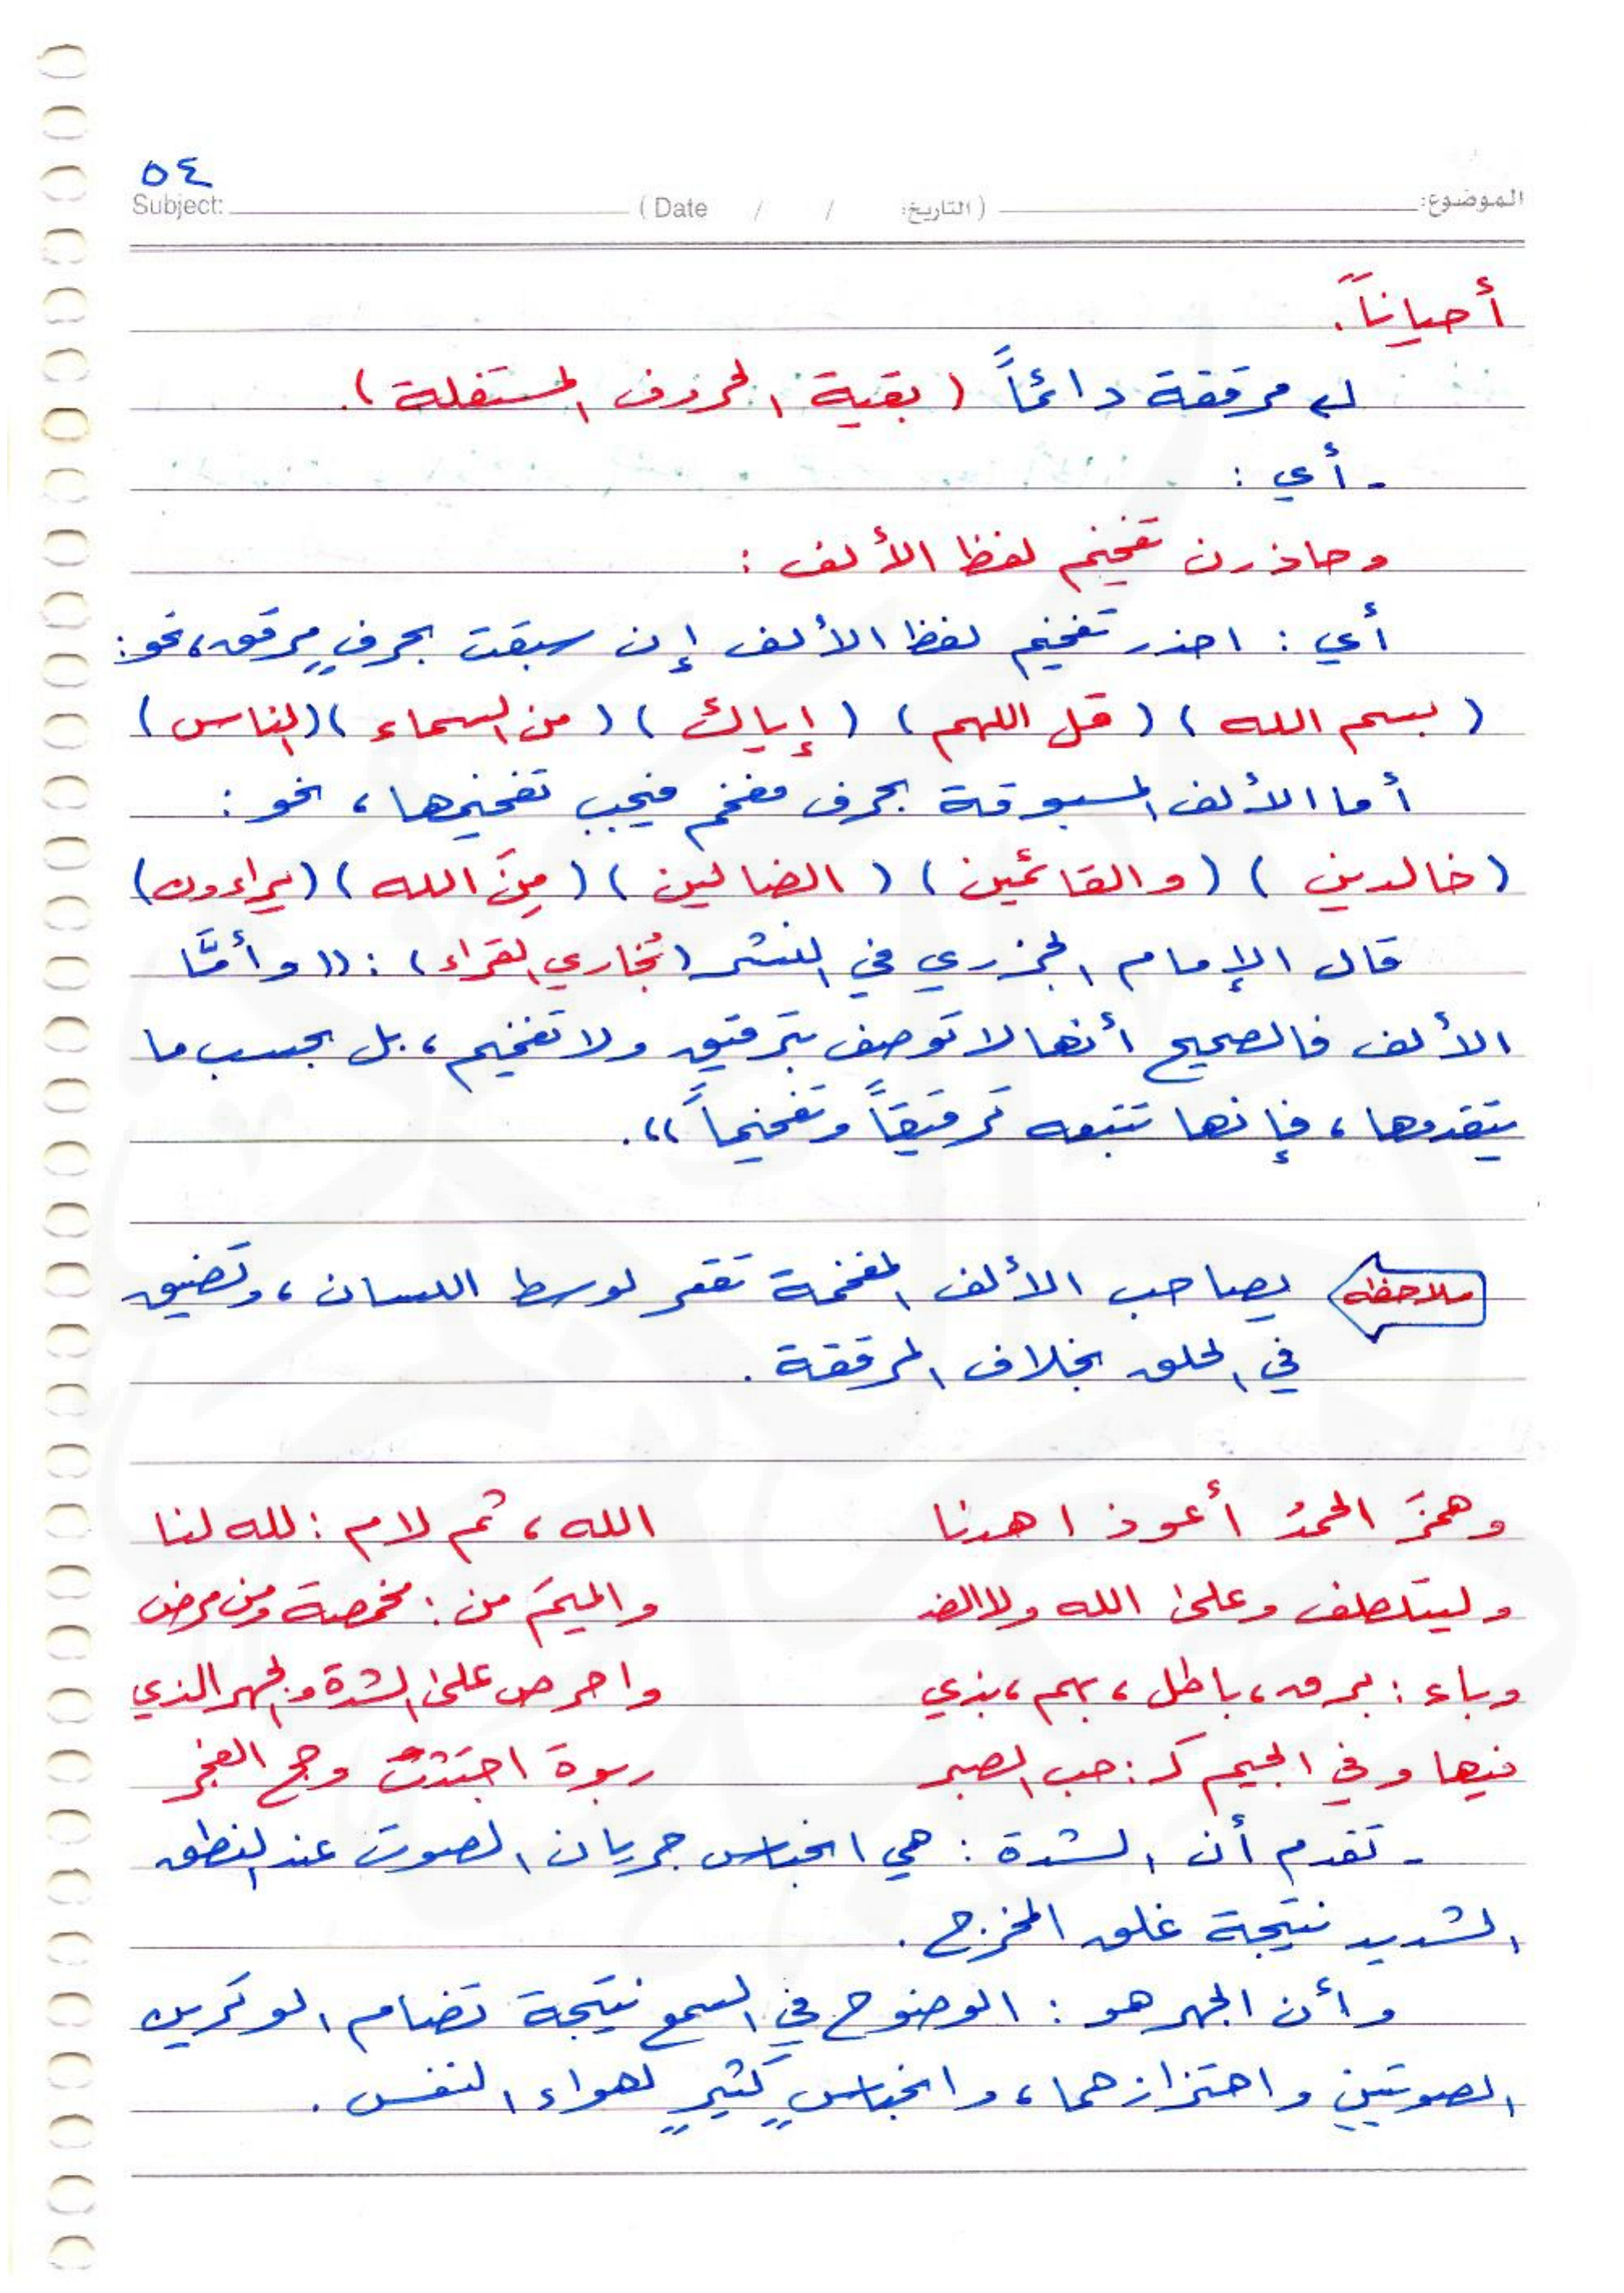 ٥٤
Subject: (Date / / التاريخ:) الموضوع:
أحياناً.
مرققة دائماً (بقية الحروف المستفلة).
- أي:
وحاذرن تفخيم لفظ الألف:
أي: احذر تفخيم لفظ الألف إن سبقت بحرفٍ مرقق، نحو:
(بسم الله) (قل اللهم) (إياك) (من السماء) (الناس)
أما الألف المسبوقة بحرف مفخم فيجب تفخيمها، نحو:
(خالدين) (والقائمين) (الضالين) (مِنَ الله) (يراءون)
قال الإمام الجزري في النشر (تُجاري القراء): ((وأمَّا
الألف فالصحيح أنها لا توصف بترقيق ولا تفخيم، بل بحسب ما
يتقدمها، فإنها تتبعه ترقيقاً وتفخيماً)).
ملاحظة يصاحب الألف المفخمة تقعر لوسط اللسان، وتضيق
في الحلق بخلاف المرققة.
وهمزَ الحمدُ أعوذ اهدنا الله، ثم لام: لله لنا
وليتلطف وعلى الله ولا الضـ والميمَ من: مخمصة ومن مرض
وباء: برق، باطل، بهم، بذي واحرص على الشدة والجهر الذي
فيها وفي الجيم كـ: حب الصبر ربوة اجتثت وحج الفجر
- تقدم أن الشدة: هي انحباس جريان الصوت عند النطق
الشديد نتيجة غلق المخرج.
وأن الجهر هو: الوضوح في السمع نتيجة تضام الوترين
الصوتيين واهتزازهما، وانحباسٍ كثيرٍ لهواء النفس.